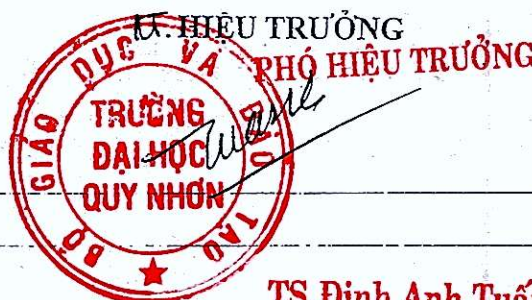 KT. HIỆU TRƯỞNG
PHÓ HIỆU TRƯỞNG
BỘ GIÁO DỤC VÀ ĐÀO TẠO
TRƯỜNG
ĐẠI HỌC
QUY NHƠN
TS Đinh Anh Tuấ